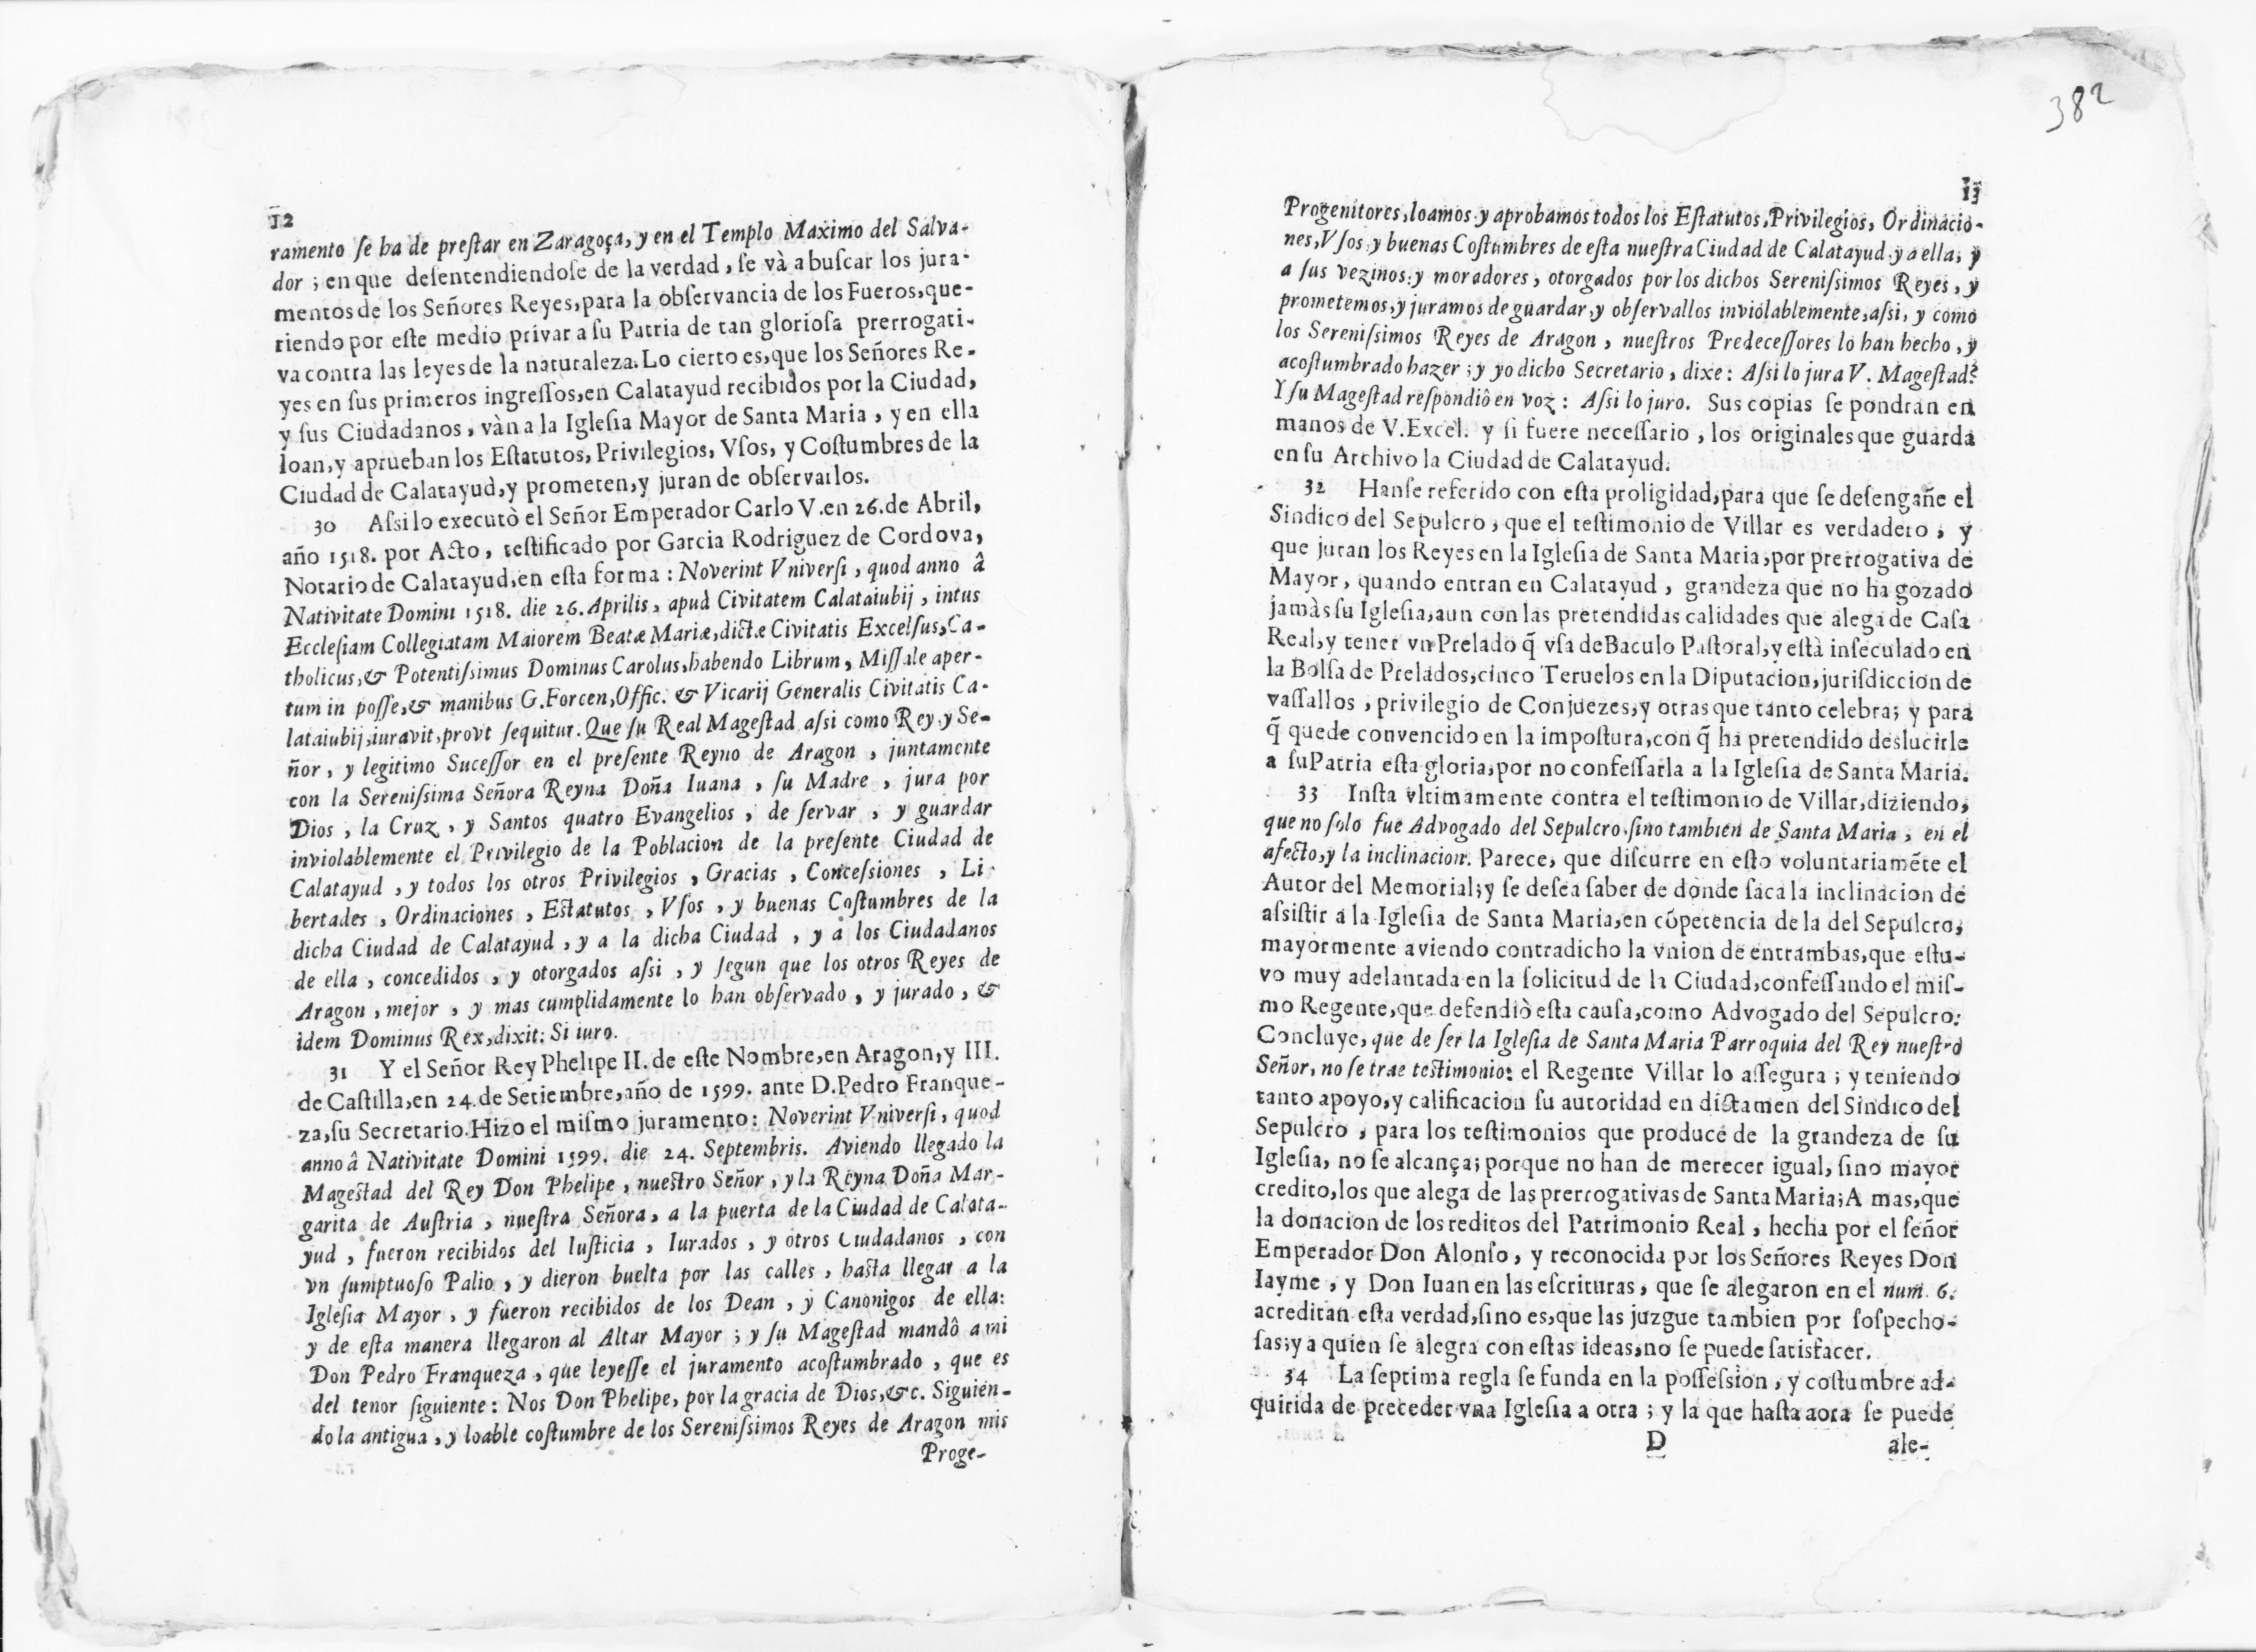 12
ramento ſe ha de preſtar en Zaragoça, y en el Templo Maximo del Salva-
dor ; en que deſentendiendoſe de la verdad, ſe và a buſcar los jura-
mentos de los Señores Reyes, para la obſervancia de los Fueros, que-
riendo por eſte medio privar a ſu Patria de tan glorioſa prerrogati-
va contra las leyes de la naturaleza. Lo cierto es, que los Señores Re-
yes en ſus primeros ingreſſos, en Calatayud recibidos por la Ciudad,
y ſus Ciudadanos, vàn a la Igleſia Mayor de Santa Maria, y en ella
loan, y aprueban los Eſtatutos, Privilegios, Vſos, y Coſtumbres de la
Ciudad de Calatayud, y prometen, y juran de obſervarlos.
30 Aſsi lo executò el Señor Emperador Carlo V. en 26. de Abril,
año 1518. por Acto, teſtificado por Garcia Rodriguez de Cordova,
Notario de Calatayud, en eſta forma : Noverint Vniverſi, quod anno â
Nativitate Domini 1518. die 26. Aprilis, apud Civitatem Calataiubij, intus
Eccleſiam Collegiatam Maiorem Beatæ Mariæ, dictæ Civitatis Excelſus, Ca-
tholicus, & Potentiſsimus Dominus Carolus, habendo Librum, Miſſale aper-
tum in poſſe, & manibus G. Forcen, Offic. & Vicarij Generalis Civitatis Ca-
lataiubij, iuravit, provt ſequitur. Que ſu Real Mageſtad aſsi como Rey, y Se-
ñor, y legitimo Suceſſor en el preſente Reyno de Aragon, juntamente
con la Sereniſsima Señora Reyna Doña Iuana, ſu Madre, jura por
Dios, la Cruz, y Santos quatro Evangelios, de ſervar, y guardar
inviolablemente el Privilegio de la Poblacion de la preſente Ciudad de
Calatayud, y todos los otros Privilegios, Gracias, Conceſsiones, Li-
bertades, Ordinaciones, Eſtatutos, Vſos, y buenas Coſtumbres de la
dicha Ciudad de Calatayud, y a la dicha Ciudad, y a los Ciudadanos
de ella, concedidos, y otorgados aſsi, y ſegun que los otros Reyes de
Aragon, mejor, y mas cumplidamente lo han obſervado, y jurado, &
idem Dominus Rex, dixit: Si iuro.
31 Y el Señor Rey Phelipe II. de eſte Nombre, en Aragon, y III.
de Caſtilla, en 24. de Setiembre, año de 1599. ante D. Pedro Franque-
za, ſu Secretario. Hizo el miſmo juramento: Noverint Vniverſi, quod
anno â Nativitate Domini 1599. die 24. Septembris. Aviendo llegado la
Mageſtad del Rey Don Phelipe, nueſtro Señor, y la Reyna Doña Mar-
garita de Auſtria, nueſtra Señora, a la puerta de la Ciudad de Calata-
yud, fueron recibidos del Iuſticia, Iurados, y otros Ciudadanos, con
vn ſumptuoſo Palio, y dieron buelta por las calles, haſta llegar a la
Igleſia Mayor, y fueron recibidos de los Dean, y Canonigos de ella:
y de eſta manera llegaron al Altar Mayor ; y ſu Mageſtad mandô a mi
Don Pedro Franqueza, que leyeſſe el juramento acoſtumbrado, que es
del tenor ſiguiente : Nos Don Phelipe, por la gracia de Dios, &c. Siguien-
do la antigua, y loable coſtumbre de los Sereniſsimos Reyes de Aragon mis
Proge-
382
13
Progenitores, loamos, y aprobamos todos los Eſtatutos, Privilegios, Ordinacio-
nes, Vſos, y buenas Coſtumbres de eſta nueſtra Ciudad de Calatayud, y a ella, y
a ſus vezinos, y moradores, otorgados por los dichos Sereniſsimos Reyes, y
prometemos, y juramos de guardar, y obſervallos inviolablemente, aſsi, y como
los Sereniſsimos Reyes de Aragon, nueſtros Predeceſſores lo han hecho, y
acoſtumbrado hazer ; y yo dicho Secretario, dixe : Aſsi lo jura V. Mageſtad?
Y ſu Mageſtad reſpondiô en voz : Aſsi lo juro. Sus copias ſe pondran en
manos de V. Excel. y ſi fuere neceſſario, los originales que guarda
en ſu Archivo la Ciudad de Calatayud.
32 Hanſe referido con eſta proligidad, para que ſe deſengañe el
Sindico del Sepulcro, que el teſtimonio de Villar es verdadero, y
que juran los Reyes en la Igleſia de Santa Maria, por prerrogativa de
Mayor, quando entran en Calatayud, grandeza que no ha gozado
jamàs ſu Igleſia, aun con las pretendidas calidades que alega de Caſa
Real, y tener vn Prelado q̃ vſa de Baculo Paſtoral, y eſtà inſeculado en
la Bolſa de Prelados, cinco Teruelos en la Diputacion, juriſdiccion de
vaſſallos, privilegio de Conjuezes, y otras que tanto celebra; y para
q̃ quede convencido en la impoſtura, con q̃ ha pretendido deslucirle
a ſu Patria eſta gloria, por no confeſſarla a la Igleſia de Santa Maria.
33 Inſta vltimamente contra el teſtimonio de Villar, diziendo,
que no ſolo fue Advogado del Sepulcro, ſino tambien de Santa Maria, en el
afecto, y la inclinacion. Parece, que diſcurre en eſto voluntariamẽte el
Autor del Memorial; y ſe deſea ſaber de donde ſaca la inclinacion de
aſsiſtir a la Igleſia de Santa Maria, en cõpetencia de la del Sepulcro,
mayormente aviendo contradicho la vnion de entrambas, que eſtu-
vo muy adelantada en la ſolicitud de la Ciudad, confeſſando el miſ-
mo Regente, que defendiò eſta cauſa, como Advogado del Sepulcro.
Concluye, que de ſer la Igleſia de Santa Maria Parroquia del Rey nueſtro
Señor, no ſe trae teſtimonio: el Regente Villar lo aſſegura ; y teniendo
tanto apoyo, y calificacion ſu autoridad en dictamen del Sindico del
Sepulcro, para los teſtimonios que produce de la grandeza de ſu
Igleſia, no ſe alcança; porque no han de merecer igual, ſino mayor
credito, los que alega de las prerrogativas de Santa Maria; A mas, que
la donacion de los reditos del Patrimonio Real, hecha por el ſeñor
Emperador Don Alonſo, y reconocida por los Señores Reyes Don
Iayme, y Don Iuan en las eſcrituras, que ſe alegaron en el num. 6.
acreditan eſta verdad, ſino es, que las juzgue tambien por ſoſpecho-
ſas; y a quien ſe alegra con eſtas ideas, no ſe puede ſatisfacer.
34 La ſeptima regla ſe funda en la poſſeſsion, y coſtumbre ad-
quirida de preceder vna Igleſia a otra ; y la que haſta aora ſe puede
D
ale-